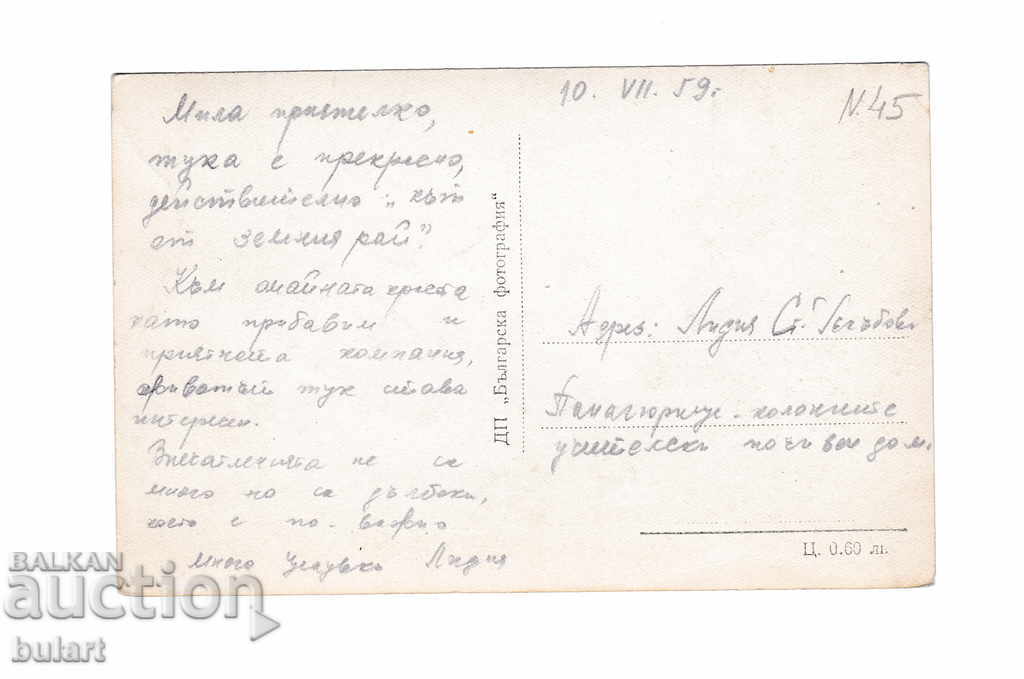 10. VII. 59г.
N.45
Мила приятелко,
тука е прекрасно,
действително "кът
от земния рай".
Към омайната гората
като прибавим и
приятната компания,
животът тук става
интересен.
Впечатленията не са
много но са дълбоки,
което е по-важно
много целувки Лидия
ДП „Българска фотография“
Адрес: Лидия Ст. Гълъбова
Панагюрище - колониите
учителски почивен дом.
Ц. 0.60 лв.
BALKAN
auction
bulart